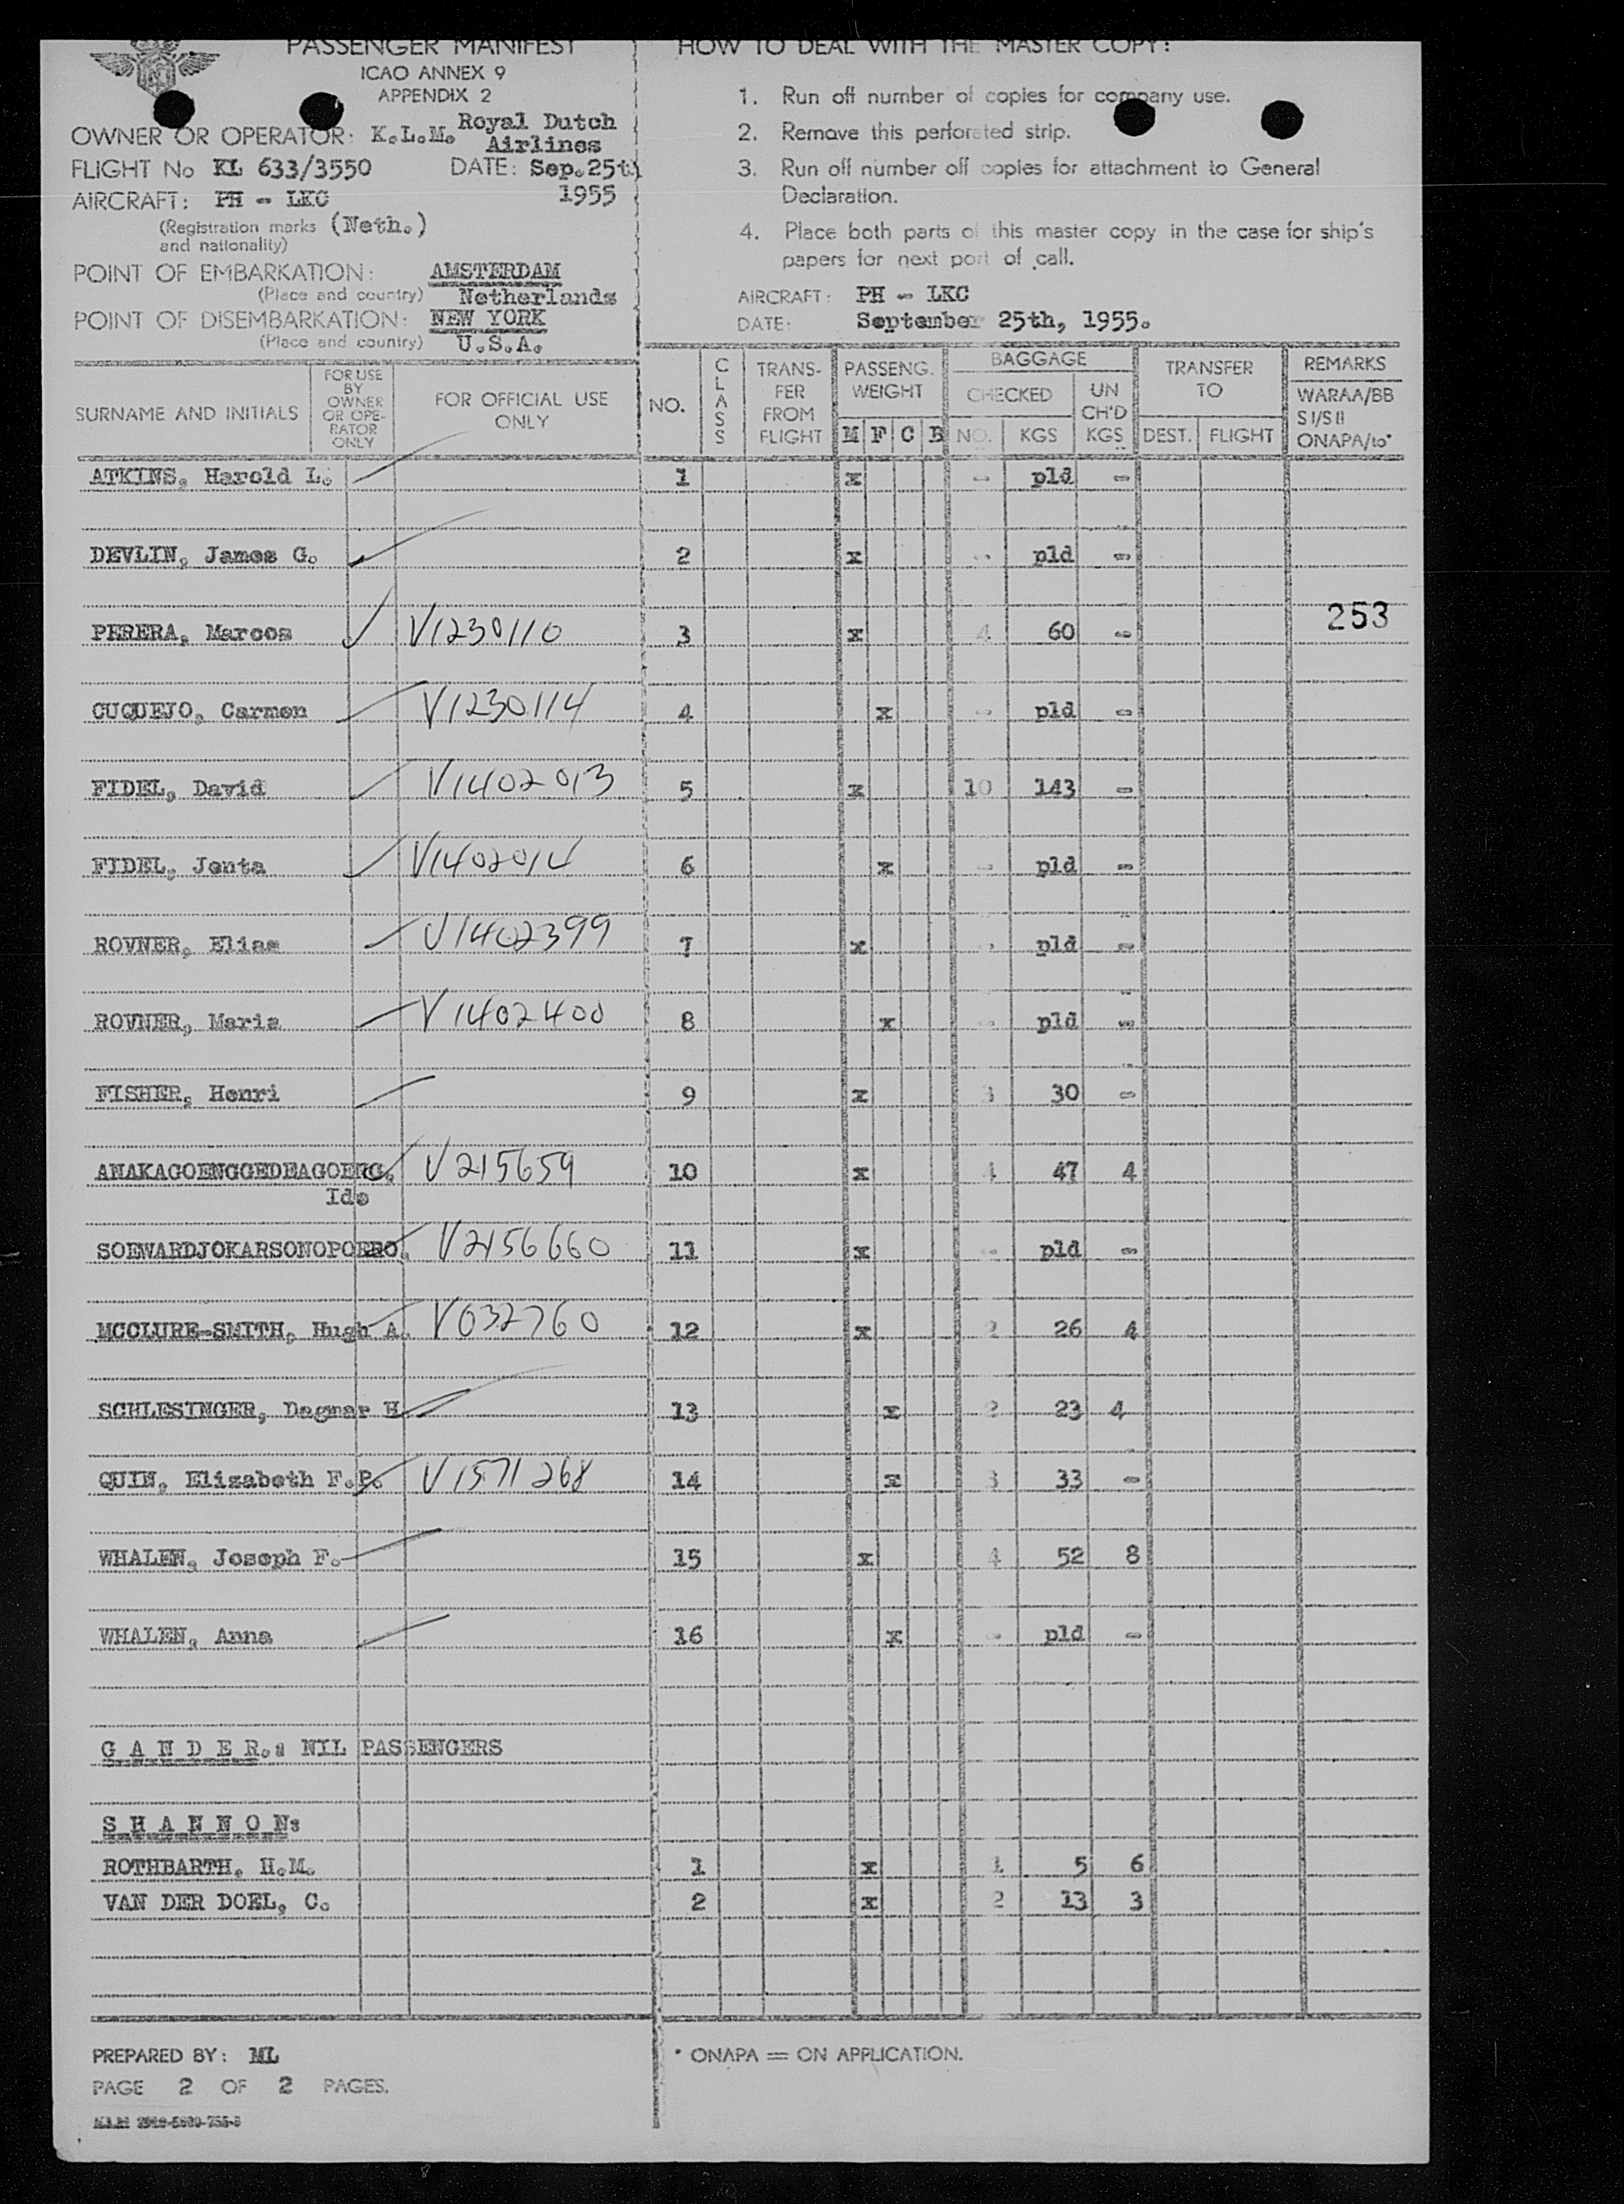 PASSENGER MANIFEST
ICAO ANNEX 9
APPENDIX 2
OWNER OR OPERATOR: K.L.M. Royal Dutch Airlines
FLIGHT No KL 633/3550 DATE: Sep.25th 1955
AIRCRAFT: PH - LKC
(Registration marks and nationality) (Neth.)
POINT OF EMBARKATION: AMSTERDAM
(Place and country) Netherlands
POINT OF DISEMBARKATION: NEW YORK
(Place and country) U.S.A.
HOW TO DEAL WITH THE MASTER COPY:
1. Run off number of copies for company use.
2. Remove this perforated strip.
3. Run off number off copies for attachment to General
Declaration.
4. Place both parts of this master copy in the case for ship's
papers for next port of call.
AIRCRAFT: PH - LKC
DATE: September 25th, 1955.
SURNAME AND INITIALS
FOR USE BY OWNER OR OPERATOR ONLY
FOR OFFICIAL USE ONLY
NO.
CLASS
TRANSFER FROM FLIGHT
PASSENG. WEIGHT
M F C B
BAGGAGE
CHECKED
NO. KGS
UN CH'D KGS
TRANSFER TO
DEST. FLIGHT
REMARKS
WARAA/BB
SI/SII
ONAPA/to*
ATKINS, Harold L. 1 x - pld -
DEVLIN, James G. 2 x - pld -
253
PERERA, Marcos V1230110 3 x 4 60 -
CUQUEJO, Carmen V1230114 4 x - pld -
FIDEL, David V1402013 5 x 10 143 -
FIDEL, Jenta V1402014 6 x - pld -
ROVNER, Elias V1402399 7 x - pld -
ROVNER, Maria V1402400 8 x - pld -
FISHER, Henri 9 x 3 30 -
ANAKAGOENGGEDEAGOENG, V215659 10 x 4 47 4
Ide
SOEWARDJOKARSONOPOERO. V2156660 11 x - pld -
MCCLURE-SMITH, Hugh A. V632760 12 x 2 26 4
SCHLESINGER, Dagmar H 13 x 2 23 4
QUIN, Elizabeth F.P. V1571268 14 x 3 33 -
WHALEN, Joseph F. 15 x 4 52 8
WHALEN, Anna 16 x - pld -
G A N D E R.: NIL PASSENGERS
S H A N N O N:
ROTHBARTH, H.M. 1 x 1 5 6
VAN DER DOEL, C. 2 x 2 13 3
PREPARED BY: ML
PAGE 2 OF 2 PAGES.
* ONAPA = ON APPLICATION.